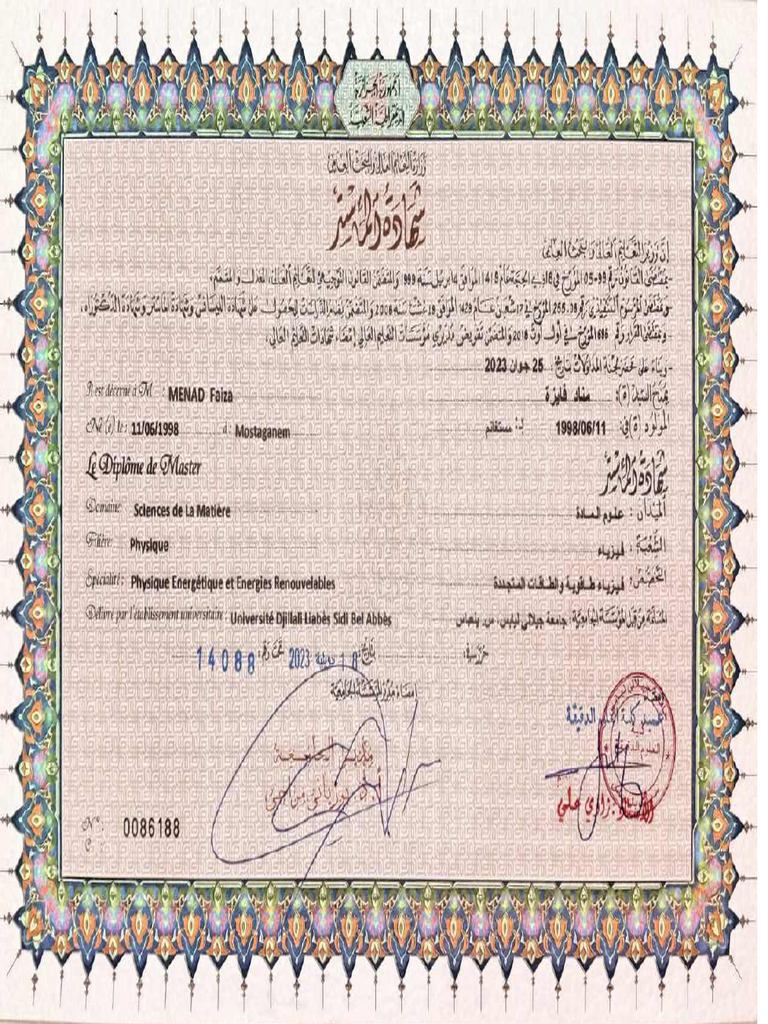 الجمهورية الجزائرية
الديمقراطية الشعبية
وزارة التعليم العالي والبحث العلمي
شهادة الماستر
إن وزير التعليم العالي والبحث العلمي
- بمقتضى القانون رقم 99-05 المؤرخ في 18 ذي الحجة عام 1419 الموافق 4 أبريل سنة 1999 والمتضمن القانون التوجيهي للتعليم العالي، المعدل والمتمم،
- وبمقتضى المرسوم التنفيذي رقم 08-265 المؤرخ في 17 شعبان عام 1429 الموافق 19 غشت سنة 2008 والمتضمن نظام الدراسات للحصول على شهادة الليسانس وشهادة الماستر وشهادة الدكتوراه،
- وبمقتضى القرار رقم المؤرخ في أول أوت 2016 والمتضمن تفويض مديري مؤسسات التعليم العالي إمضاء شهادات التعليم العالي،
- وبناء على محضر لجنة المداولات بتاريخ 25 جوان 2023
يمنح السيد (ة): مناد فايزة
Il est décerné à M : MENAD Faiza
المولود (ة) في: 1998/06/11 بـ: مستغانم
Né (e) le : 11/06/1998 à : Mostaganem
شهادة الماستر
Le Diplôme de Master
الميدان : علوم المادة
Domaine : Sciences de La Matière
الشعبة : فيزياء
Filière : Physique
التخصص : فيزياء طاقوية والطاقات المتجددة
Spécialité : Physique Energétique et Energies Renouvelables
المسلمة من قبل المؤسسة الجامعية: جامعة جيلالي ليابس، س. بلعباس
Délivré par l'établissement universitaire : Université Djillali Liabès Sidi Bel Abbès
حرر في: بتاريخ 18 2023 تحت رقم 14088
إمضاء مدير المؤسسة الجامعية
عميد كلية العلوم الدقيقة
مدير الجامعة
زاوي علي
N° : 0086188